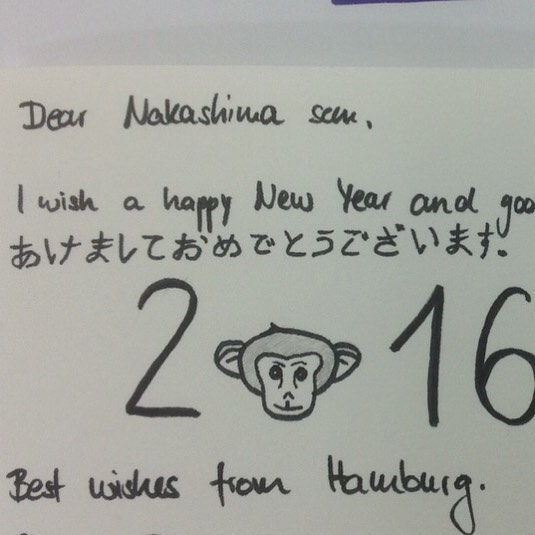 Dear Nakashima san,
I wish a happy New Year and goo
あけましておめでとうございます.
2016
Best wishes from Hamburg.